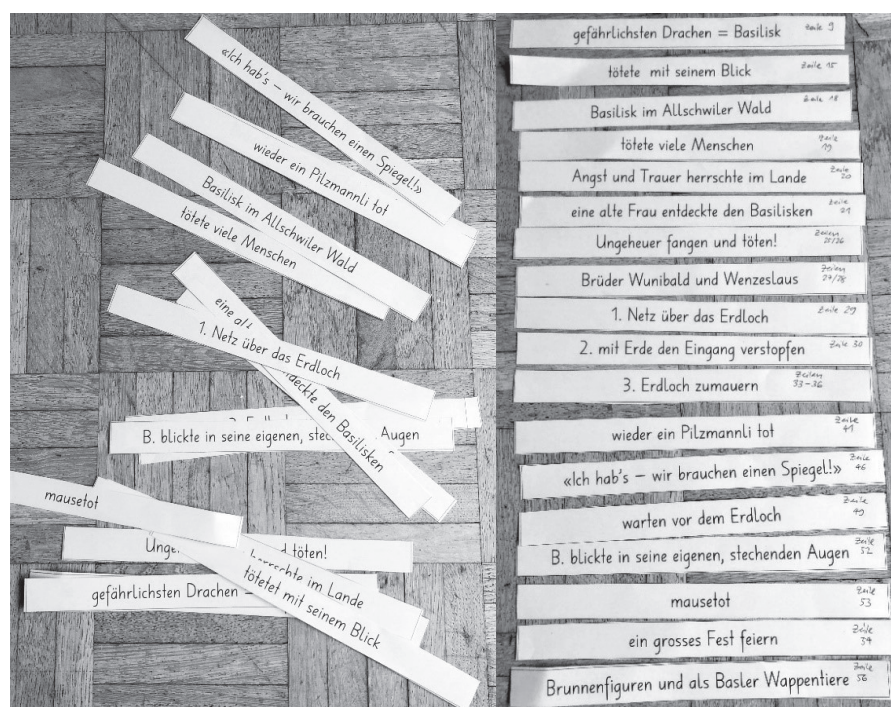 «Ich hab's – wir brauchen einen Spiegel!»
wieder ein Pilzmannli tot
Basilisk im Allschwiler Wald
tötete viele Menschen
eine al
deckte den Basilisken
1. Netz über das Erdloch
B. blickte in seine eigenen, Augen
mausetot
töten!
im Lande
tötetet mit seinem Blick
gefährlichsten Drachen
gefährlichsten Drachen = Basilisk Zeile 9
tötete mit seinem Blick Zeile 15
Basilisk im Allschwiler Wald Zeile 18
tötete viele Menschen Zeile 19
Angst und Trauer herrschte im Lande Zeile 20
eine alte Frau entdeckte den Basilisken Zeile 21
Ungeheuer fangen und töten! Zeilen 25/26
Brüder Wunibald und Wenzeslaus Zeilen 27/28
1. Netz über das Erdloch Zeile 29
2. mit Erde den Eingang verstopfen Zeile 30
3. Erdloch zumauern Zeilen 33–36
wieder ein Pilzmannli tot Zeile 41
«Ich hab's – wir brauchen einen Spiegel!» Zeile 46
warten vor dem Erdloch Zeile 49
B. blickte in seine eigenen, stechenden Augen Zeile 52
mausetot Zeile 53
ein grosses Fest feiern Zeile 54
Brunnenfiguren und als Basler Wappentiere Zeile 56